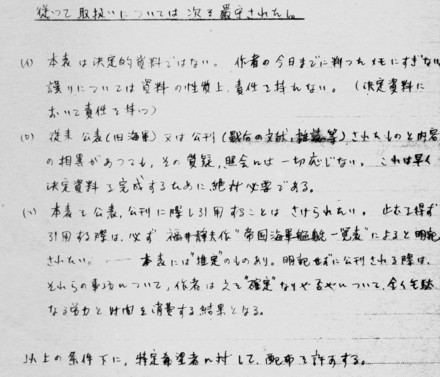 従つて取扱いについては次を厳守されたし
(イ) 本表は決定的資料ではない。 作者の今日までに判つたメモにすぎない
誤りについては資料の性質上、責任を持たない。 (決定資料に
おいて責任を持つ)
(ロ) 従来公表(旧海軍)又は公刊(戦後の文献、雑誌等)されたものと内容
の相異があつても、その質疑、照会には一切応じない。 これは早く
決定資料を完成するために絶対必要である。
(ハ) 本表を公表、公刊に際し引用することは さけられたい。 止むを得ず
引用する際は、必ず 福井静夫作“帝国海軍艦艇一覧表”によると明記
されたい。 ── 本表には“推定”のものあり。明記せずに公刊される際は、
それらの事項について、作者はそれ“確定”なりや否やについて、全く無駄
なる労力と時間を消費する結果となる。
以上の条件下に、特定希望者に対して、配布を許可する。